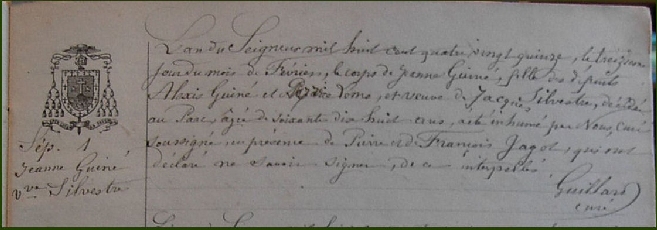 Sép. 1
Jeanne Guiné
Vve Silvestre
L'an du Seigneur mil huit cent quatre vingt quinze, le treizième
jour du mois de Février, le corps de Jeanne Guiné, fille des défunts
Alexis Guiné et de Lomé, et veuve de Jacques Silvestre, décédée
au Parc, âgée de soixante dix huit ans, a été inhumé par Nous, curé
soussigné en présence de Pierre et de François Jagot, qui ont
déclaré ne savoir signer, de ce interpellés
Guillard
curé